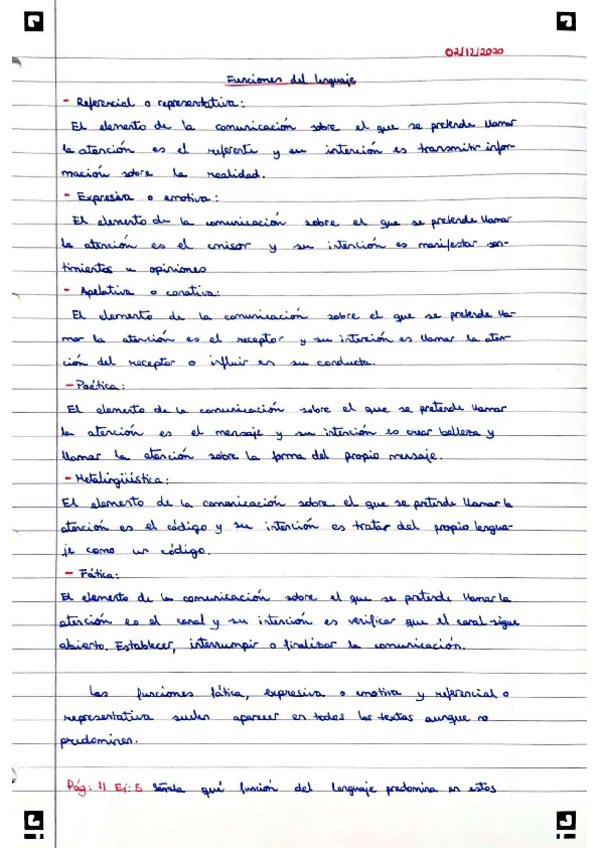 02/12/2020
Funciones del lenguaje
- Referencial o representativa:
El elemento de la comunicación sobre el que se pretende llamar
la atención es el referente y su intención es transmitir infor-
mación sobre la realidad.
- Expresiva o emotiva:
El elemento de la comunicación sobre el que se pretende llamar
la atención es el emisor y su intención es manifestar sen-
timientos u opiniones
- Apelativa o conativa:
El elemento de la comunicación sobre el que se pretende lla-
mar la atención es el receptor y su intención es llamar la aten-
ción del receptor o influir en su conducta.
- Poética:
El elemento de la comunicación sobre el que se pretende llamar
la atención es el mensaje y su intención es crear belleza y
llamar la atención sobre la forma del propio mensaje.
- Metalingüística:
El elemento de la comunicación sobre el que se pretende llamar la
atención es el código y su intención es tratar del propio lengua-
je como un código.
- Fática:
El elemento de la comunicación sobre el que se pretende llamar la
atención es el canal y su intención es verificar que el canal sigue
abierto. Establecer, interrumpir o finalizar la comunicación.
Las funciones fática, expresiva o emotiva y referencial o
representativa suelen aparecer en todos los textos aunque no
predominen.
Pág: 11 Ej: 5 Señala qué función del lenguaje predomina en estos